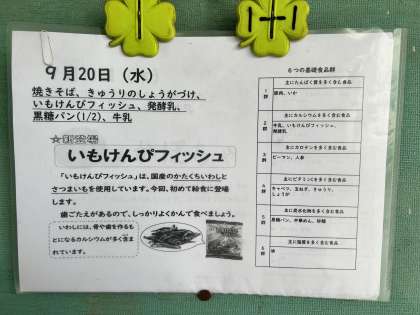 1-1
9月20日（水）
焼きそば、きゅうりのしょうがづけ、
いもけんぴフィッシュ、発酵乳、
黒糖パン(1/2)、牛乳
☆新登場
いもけんぴフィッシュ
「いもけんぴフィッシュ」は、国産のかたくちいわしと
さつまいもを使用しています。今回、初めて給食に登場
します。
歯ごたえがあるので、しっかりよくかんで食べましょう。
いわしには、骨や歯を作るも
とになるカルシウムが多く含ま
れています。
６つの基礎食品群
主にたんぱく質を多く含む食品
1群
豚肉、いか
主にカルシウムを多く含む食品
2群
牛乳、いもけんぴフィッシュ、
発酵乳
主にカロテンを多く含む食品
3群
ピーマン、人参
主にビタミンCを多く含む食品
4群
キャベツ、玉ねぎ、きゅうり、
しょうが
主に炭水化物を多く含む食品
5群
黒糖パン、中華めん、砂糖
主に脂質を多く含む食品
6群
油